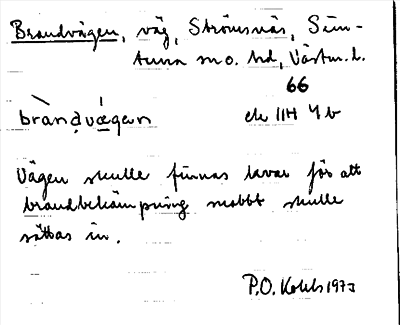 Brandvägen, väg, Strömsnäs, Sim-
tuna sn o. hd, Västm. l.
66
bràndvǽgen ek 11H 4b
Vägen skulle finnas bara för att
brandbekämpning snabbt skulle
sättas in.
P.O. 1973